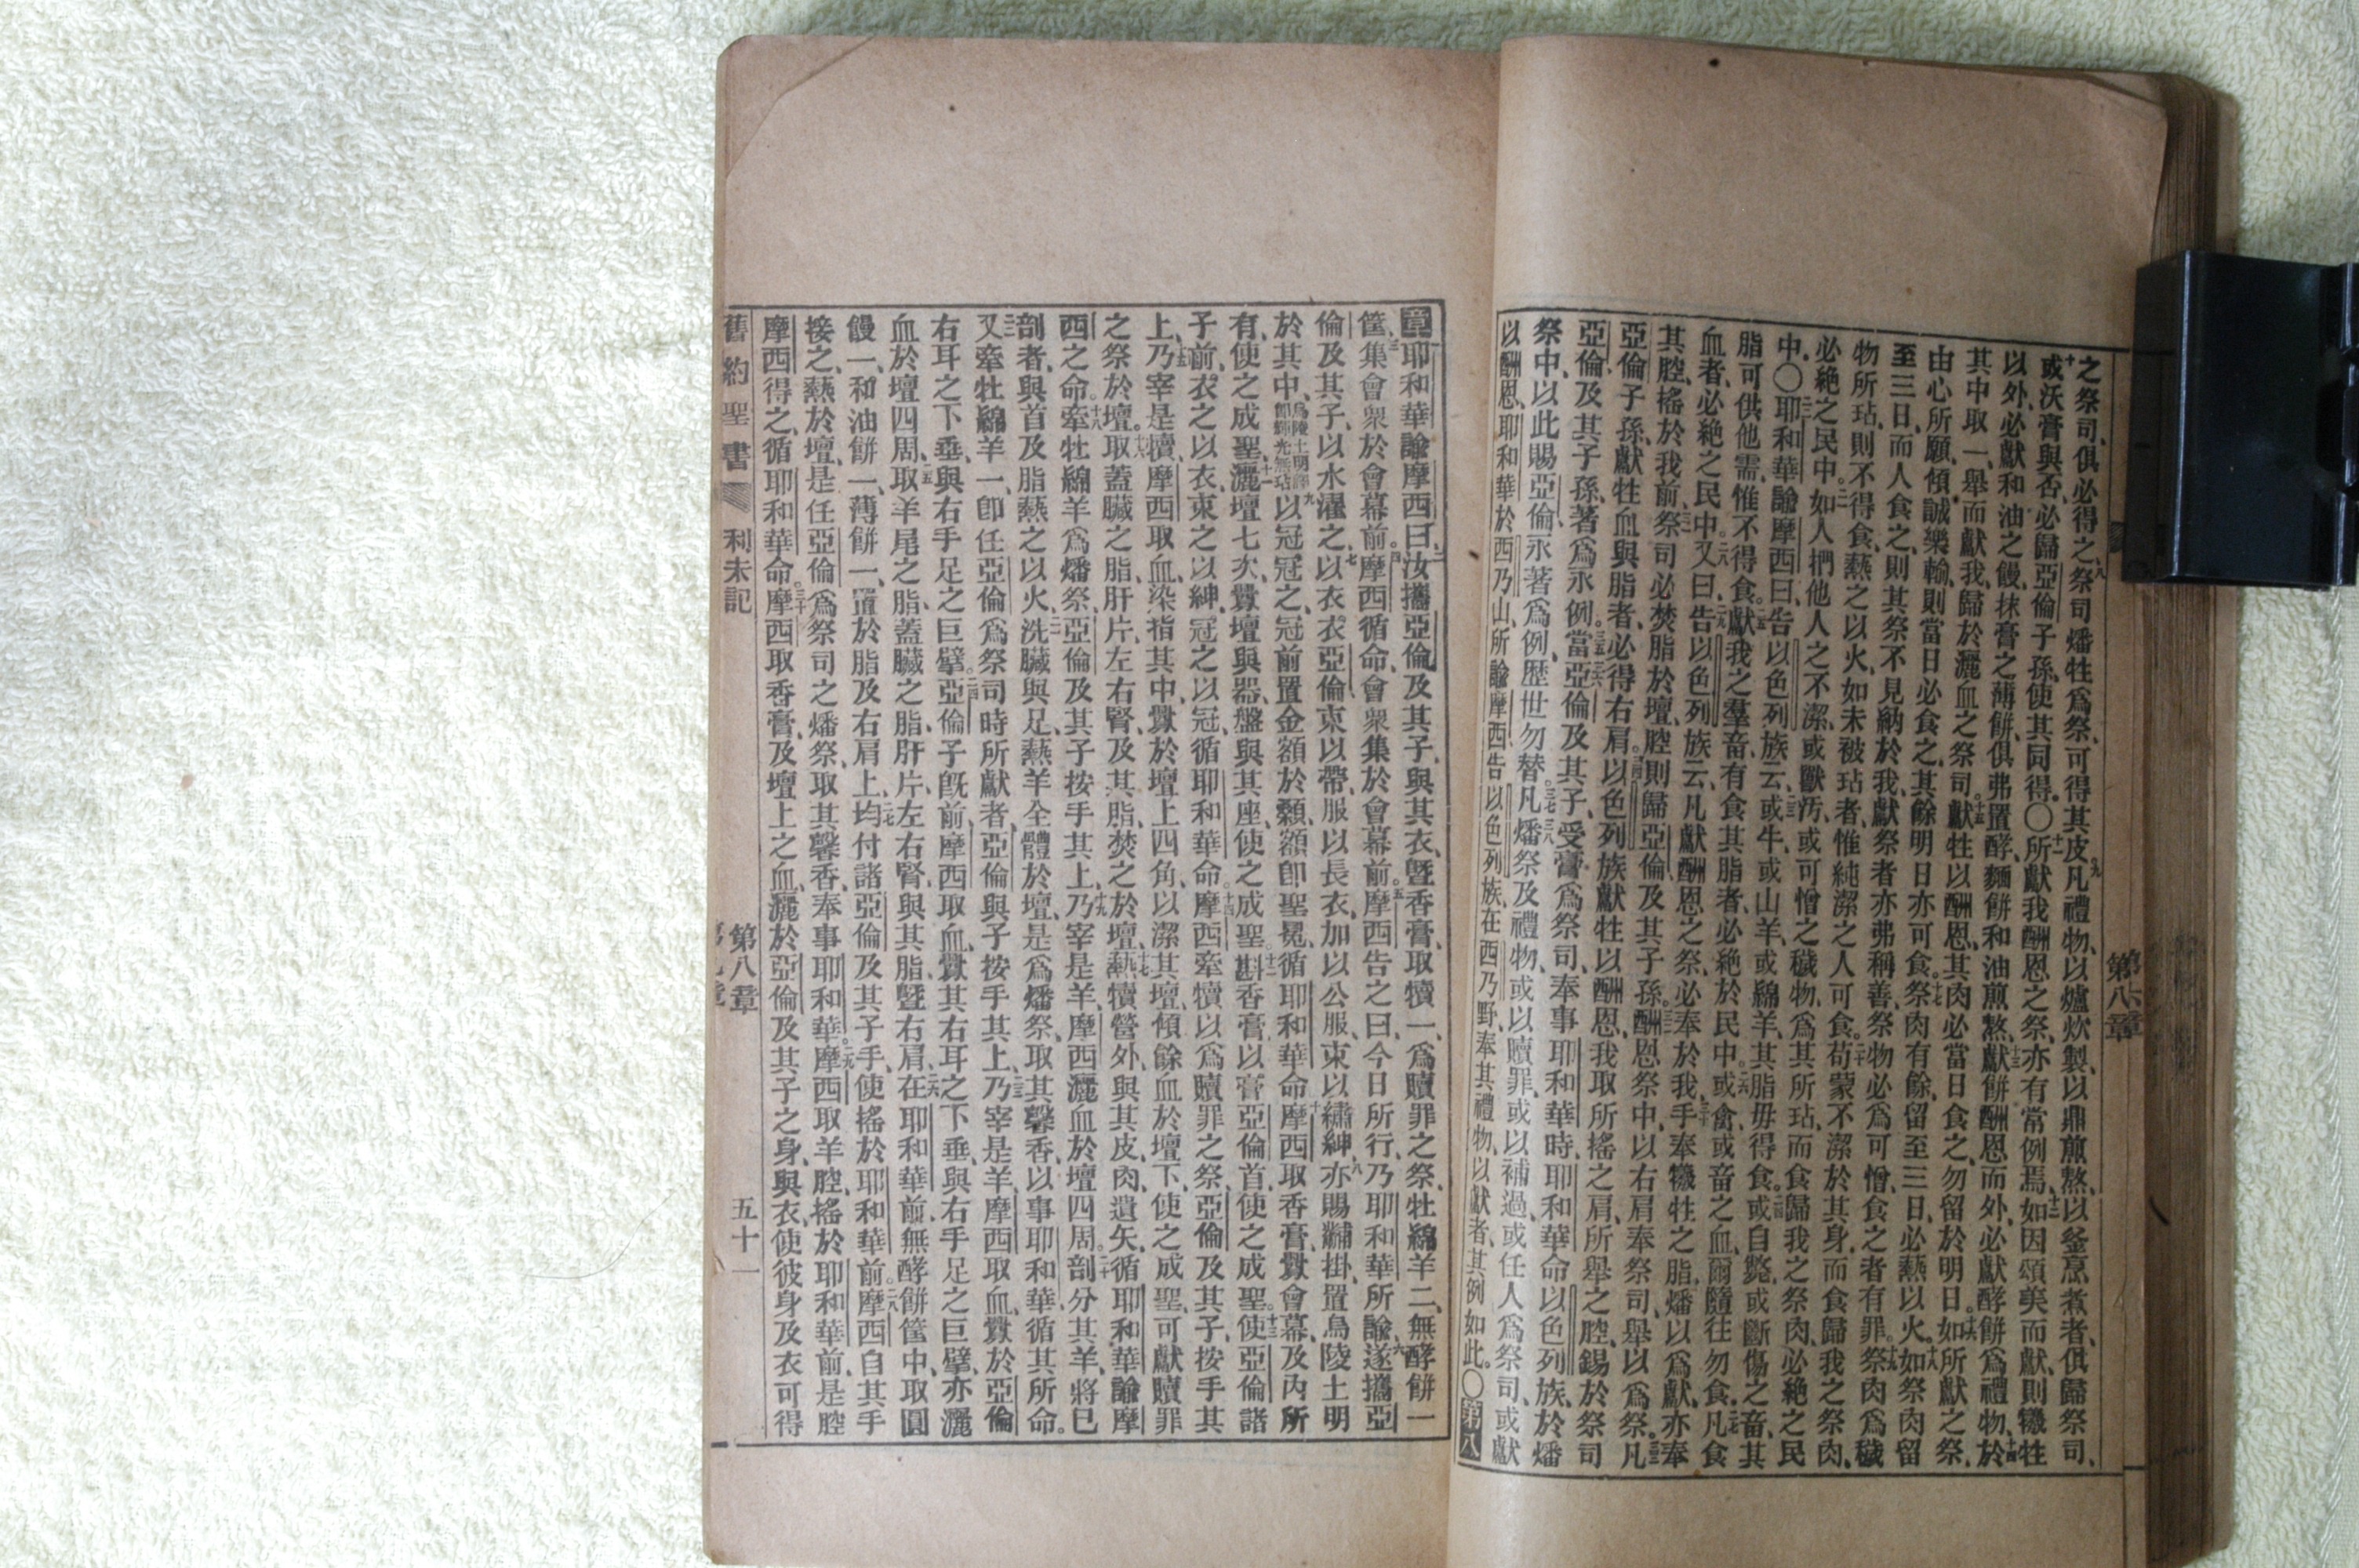 之祭司、俱必得之、八祭司燔牲爲祭、可得其皮、九凡禮物、以爐炊製、以鼎煎熬、以釜烹煮者、俱歸祭司、
十或沃膏與否、必歸亞倫子孫、使其同得。〇十一所獻我酬恩之祭、亦有常例焉、十二如因頌美而獻、則犧牲
以外、必獻和油之饅、抹膏之薄餅、俱弗置酵、麵餅和油煎熬、十三獻餅酬恩而外、必獻酵餅爲禮物、十四於
其中取一、舉而獻我、歸於灑血之祭司。十五獻牲以酬恩、其肉必當日食之、勿留於明日。十六如所獻之祭、
由心所願、傾誠樂輸、則當日必食之、其餘明日亦可食。十七祭肉有餘、留至三日、必爇以火。十八如祭肉留
至三日、而人食之、則其祭不見納於我、獻祭者亦弗稱善、祭物必爲可憎、食之者有罪。十九祭肉爲穢
物所玷、則不得食、爇之以火、如未被玷者、惟純潔之人可食。二十苟蒙不潔於其身、而食歸我之祭肉、
必絕之民中。二一如人捫他人之不潔、或獸汚、或可憎之穢物、爲其所玷、而食歸我之祭肉、必絕之民
中。〇二二耶和華諭摩西曰、告以色列族云、二三或牛、或山羊、或綿羊、其脂毋得食。二四或自斃、或斷傷之畜、其
脂可供他需、惟不得食。二五獻我之羣畜、有食其脂者、必絕於民中。二六或禽或畜之血、爾隨往勿食、二七凡食
血者、必絕之民中。二八又曰、二九告以色列族云、凡獻酬恩之祭、必奉於我、三十手奉犧牲之脂、燔以爲獻、亦奉
其腔、搖於我前、三一祭司必焚脂於壇、腔則歸亞倫及其子孫、三二酬恩祭中、以右肩奉祭司、舉以爲祭。三三凡
亞倫子孫、獻牲血與脂者、必得右肩。三四以色列族獻牲以酬恩、我取所搖之肩、所舉之腔、錫於祭司
亞倫及其子孫、著爲永例。三五三六當亞倫及其子、受膏爲祭司、奉事耶和華時、耶和華命以色列族、於燔
祭中、以此賜亞倫、永著爲例、歷世勿替。三七三八凡燔祭及禮物、或以贖罪、或以補過、或任人爲祭司、或獻
以酬恩、耶和華於西乃山、所諭摩西、告以色列族、在西乃野、奉其禮物、以獻者、其例如此。〇第八
章耶和華諭摩西曰、二汝攜亞倫及其子、與其衣、曁香膏、取犢一、爲贖罪之祭、牡綿羊二、無酵餅一
筐、三集會衆於會幕前。四摩西循命、會衆集於會幕前。五摩西告之曰、今日所行、乃耶和華所諭、六遂攜亞
倫及其子、以水濯之、七以衣衣亞倫、束以帶、服以長衣、加以公服、束以繡紳、八亦賜黼掛、置烏陵土明
於其中、烏陵土明譯卽輝光無玷九以冠冠之、冠前置金額於顙、額卽聖冕、循耶和華命、十摩西取香膏、釁會幕、及內所
有、使之成聖、十一灑壇七次、釁壇與器、盤與其座、使之成聖。十二斟香膏以膏亞倫首、使之成聖。十三使亞倫諸
子前、衣之以衣、束之以紳、冠之以冠、循耶和華命。十四摩西牽犢、以爲贖罪之祭、亞倫及其子、按手其
上、十五乃宰是犢、摩西取血、染指其中、釁於壇上四角、以潔其壇、傾餘血於壇下、使之成聖、可獻贖罪
之祭於壇。十六取蓋臟之脂、肝片、左右腎、及其脂、焚之於壇、十七爇犢營外、與其皮肉、遺矢、循耶和華諭摩
西之命。十八牽牡綿羊爲燔祭、亞倫及其子按手其上、十九乃宰是羊、摩西灑血於壇四周。二十剖分其羊、將已
剖者、與首及脂、爇之以火、二一洗臟與足、爇羊全體於壇、是爲燔祭、取其馨香、以事耶和華、循其所命。
二二又牽牡綿羊一、卽任亞倫爲祭司時所獻者、亞倫與子按手其上、二三乃宰是羊、摩西取血、釁於亞倫
右耳之下垂、與右手足之巨擘。二四亞倫子旣前、摩西取血、釁其右耳之下垂、與右手足之巨擘、亦灑
血於壇四周、二五取羊尾之脂、蓋臟之脂、肝片、左右腎、與其脂、曁右肩、二六在耶和華前、無酵餅筐中、取圓
饅一、和油餅一、薄餅一、置於脂及右肩上、二七均付諸亞倫及其子手、使搖於耶和華前。二八摩西自其手
接之、爇於壇、是任亞倫爲祭司之燔祭、取其馨香、奉事耶和華。二九摩西取羊腔、搖於耶和華前、是腔
摩西得之、循耶和華命。三十摩西取香膏、及壇上之血、灑於亞倫及其子之身、與衣、使彼身及衣可得
舊約聖書 利未記 第八章 五十一